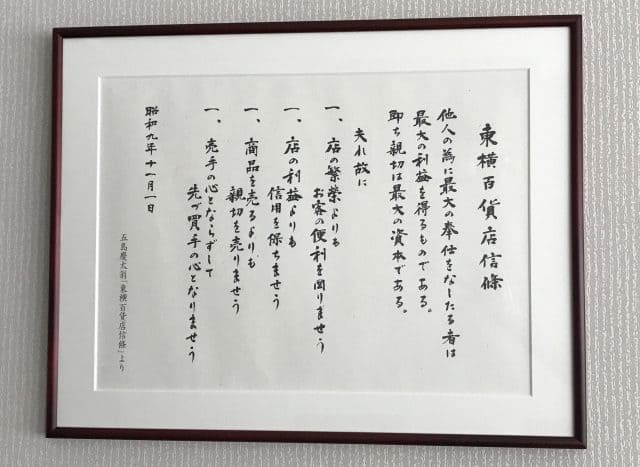 東横百貨店信條
他人の為に最大の奉仕をなしたる者は
最大の利益を得るものである。
即ち親切は最大の資本である。
夫れ故に
一、店の繁榮よりも
お客の便利を図りませう
一、店の利益よりも
信用を保ちませう
一、商品を売るよりも
親切を売りませう
一、売手の心とならずして
先づ買手の心となりませう
昭和九年十一月一日
五島慶太翁「東横百貨店信條」より